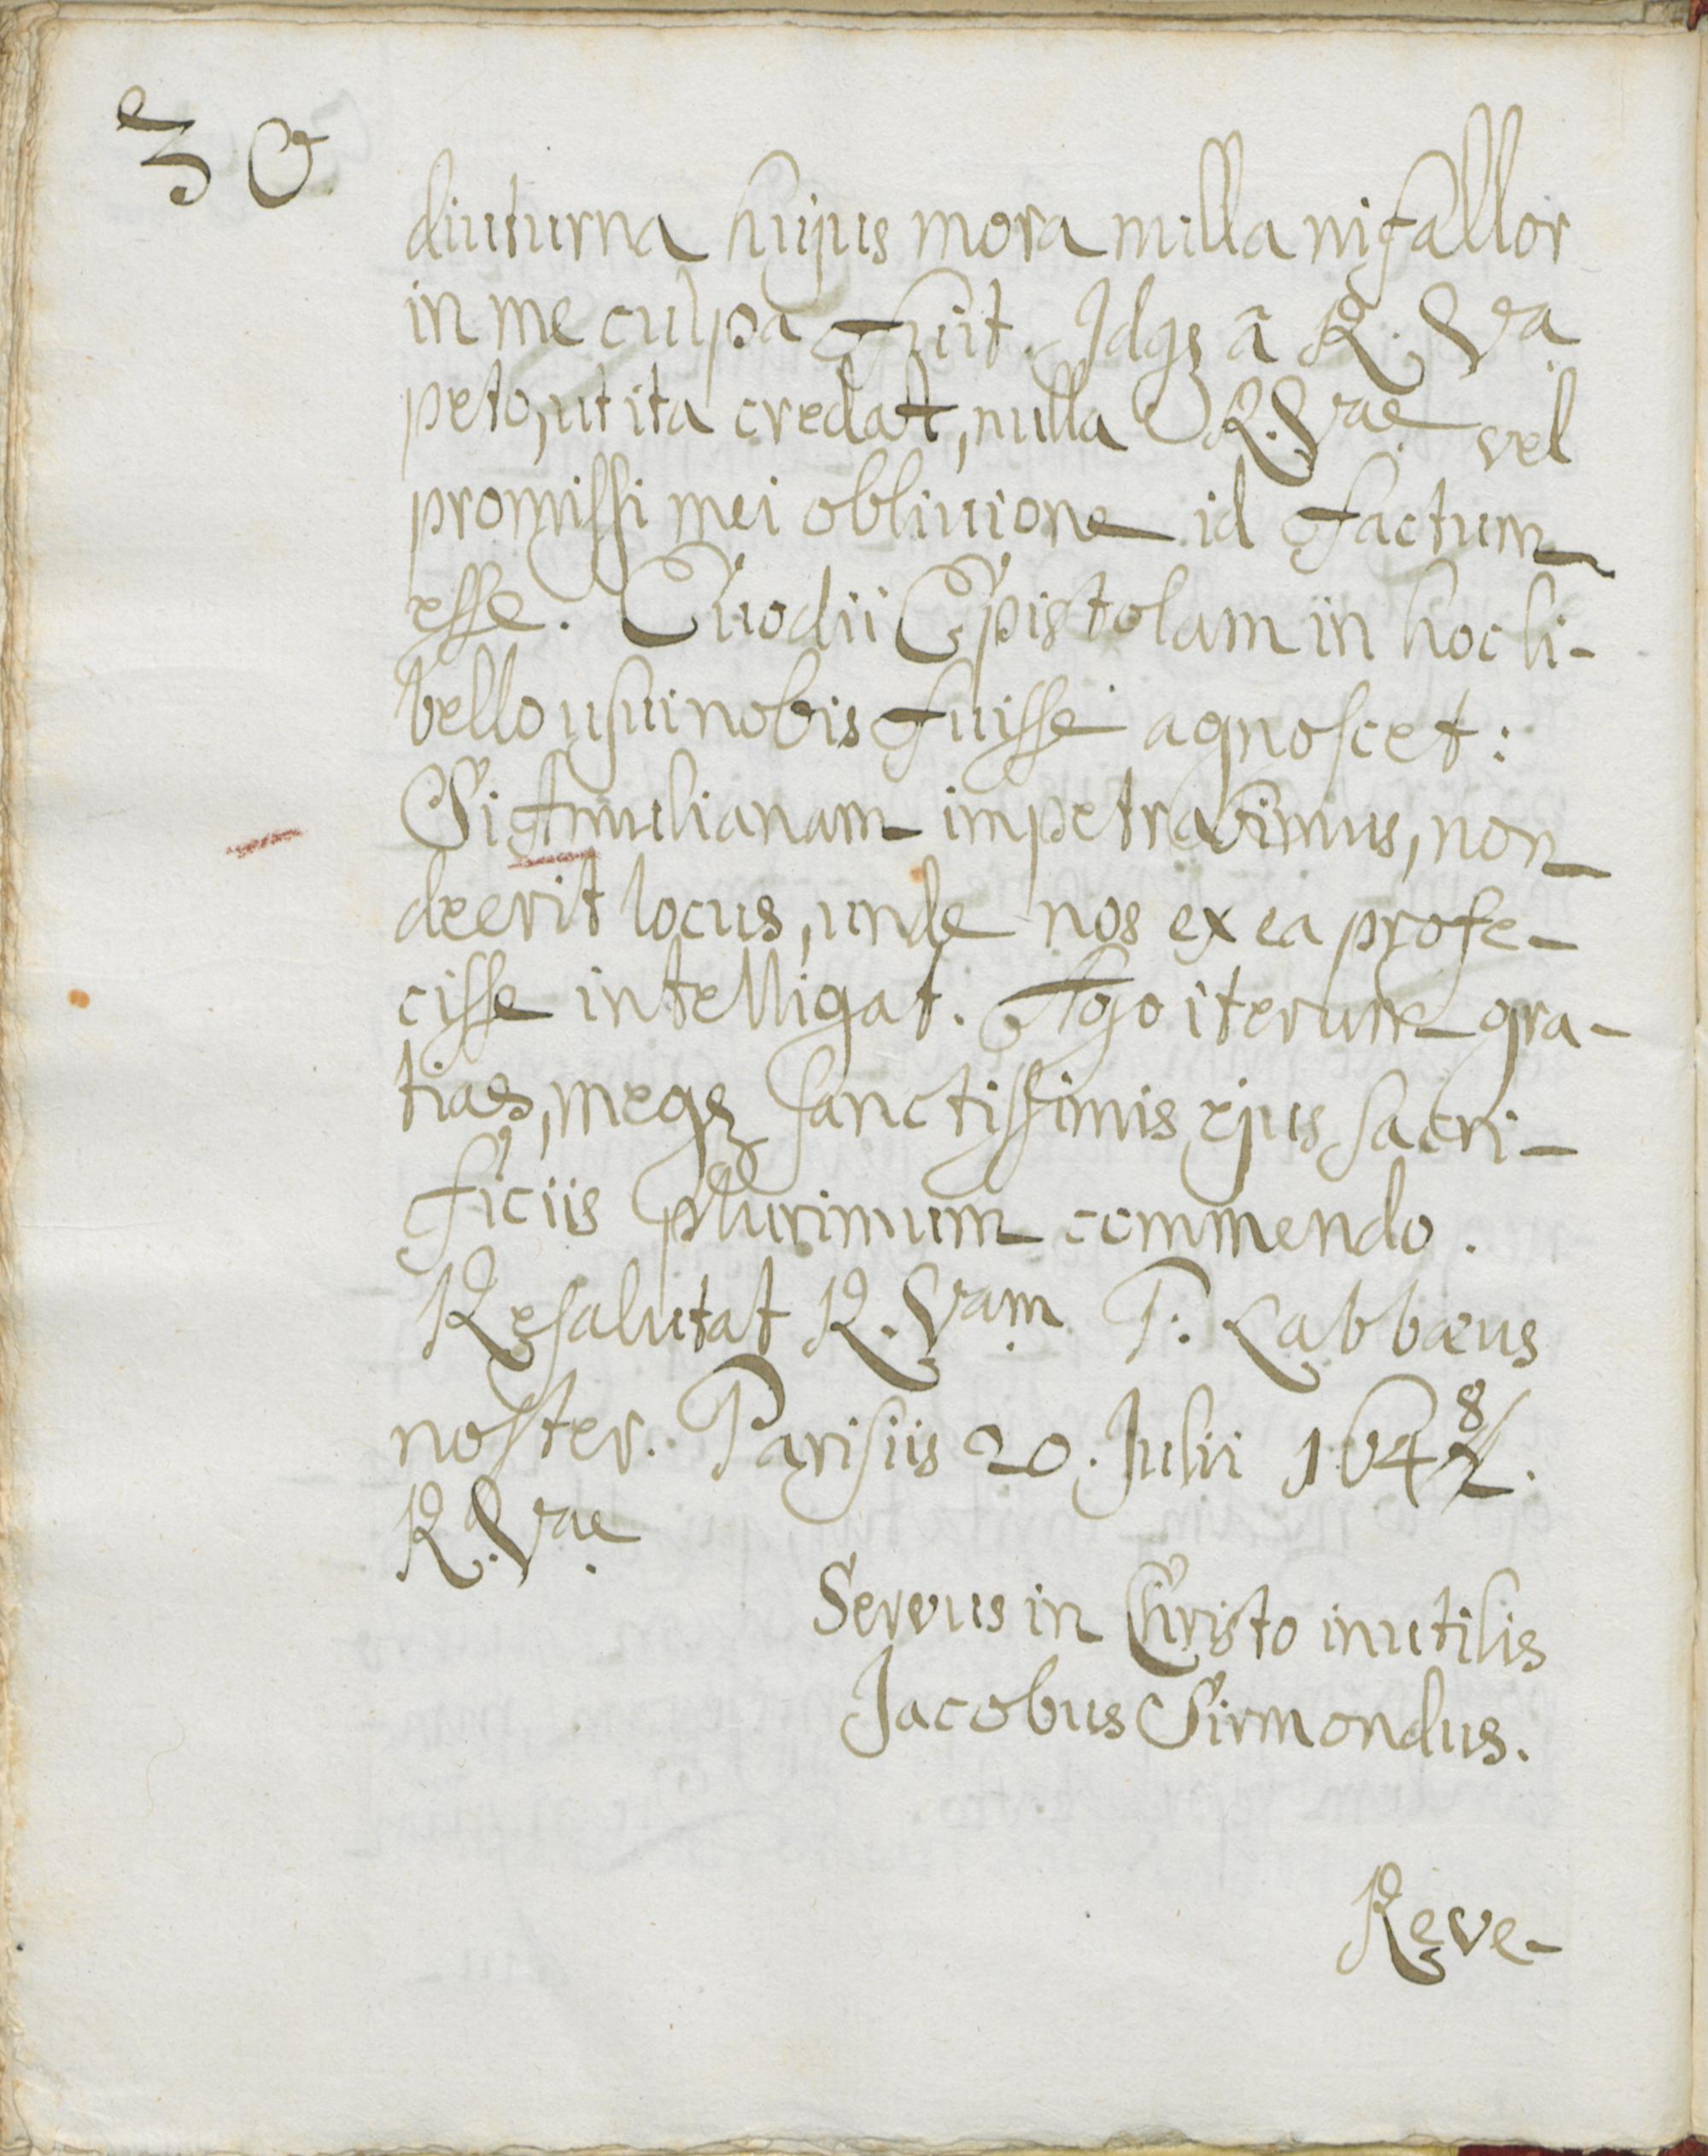 30
diuturna hujus mora nulla ni fallor
in me culpa fuit. Idq; à R. Va.
peto, ut ita credat, nulla R. Vae. vel
promissi mei obliuione id factum
esse. Euodii Epistolam in hoc li-
bello usui nobis fuisse agnoscet:
Si Amulianam impetrabimus, non
deerit locus, unde nos ex ea profe-
cisse intelligat. Ago iterum gra-
tias, meq; sanctissimis ejus sacri-
ficiis plurimum commendo.
Resalutat R. Vam. P. Labbæus
noster. Parisiis 20. Julii 1648.
R. Vae.
Servus in Christo inutilis
Jacobus Sirmondus.
Reve-